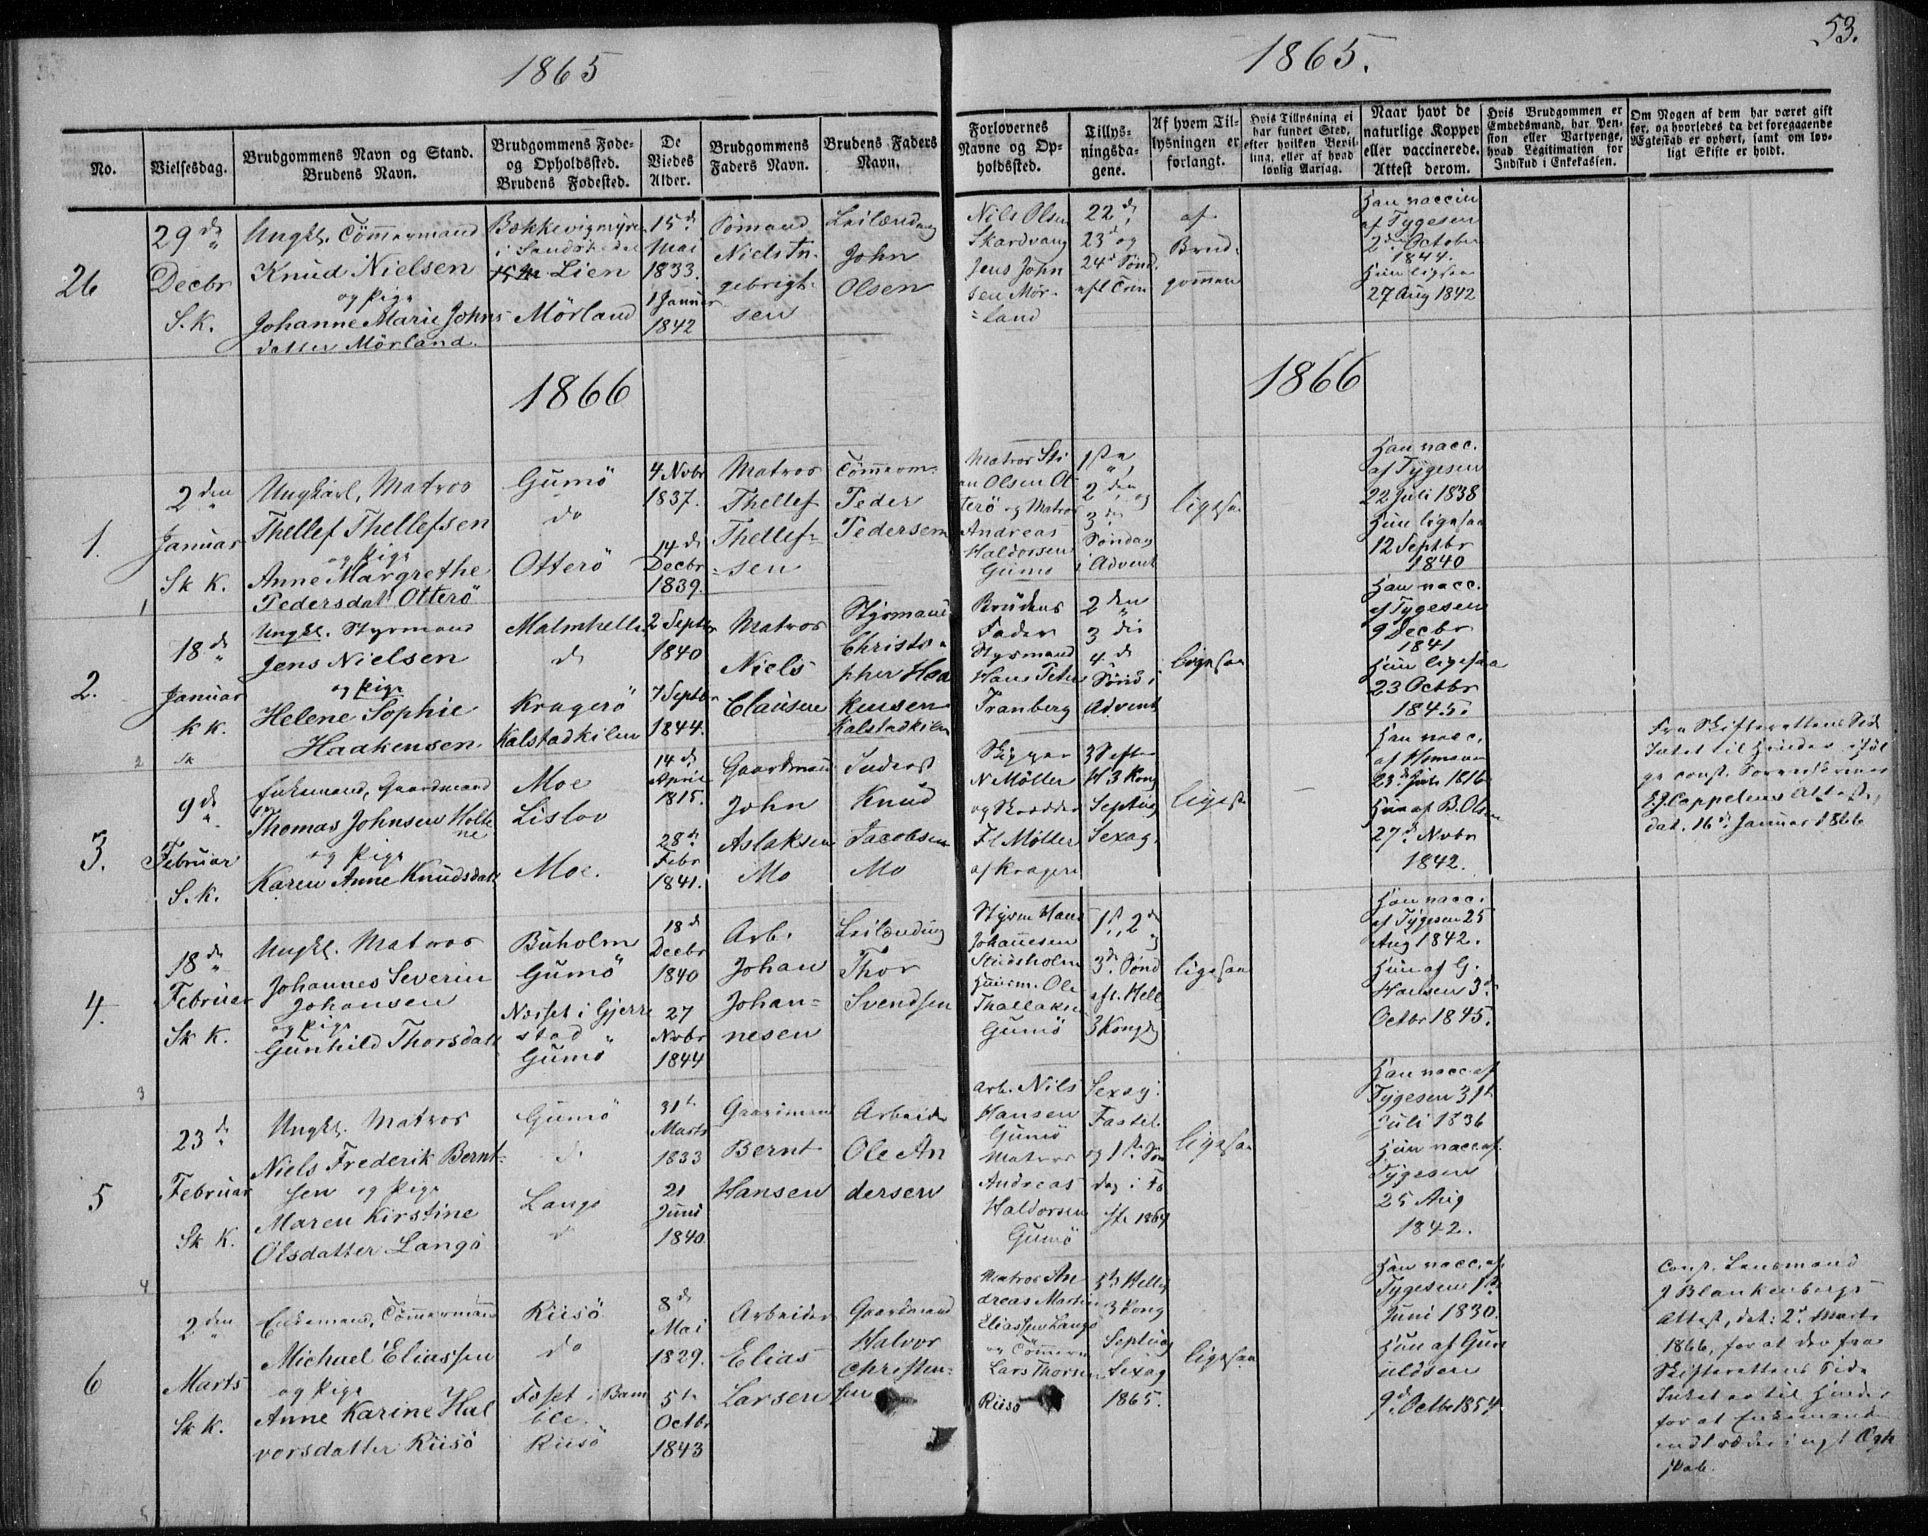 1865
1865.
53.
No.
Vielsesdag.
Brudgommens Navn og Stand.
Brudens Navn.
Brudgommens Føde-
og Opholdssted.
Brudens Fødested.
De
Viedes
Alder.
Brudgommens
Faders Navn.
Brudens Faders
Navn.
Forlovernes
Navne og Op-
holdssted.
Tillys-
ningsda-
gene.
Af hvem Til-
lysningen er
forlangt.
Hvis Tillysning ei
har fundet Sted,
efter hvilken Bevil-
ling, eller af hvad
lovlig Aarsag.
Naar havt de
naturlige Kopper
eller vaccinerede.
Attest derom.
Hvis Brudgommen er
Embedsmand, har Pen-
sion eller Vartpenge,
hvad Legitimation for
Indskud i Enkekassen.
Om Nogen af dem har været gift
før, og hvorledes da det foregaaende
Ægteskab er ophørt, samt om lov-
ligt Skifte er holdt.
26
29de
Decbr
S. K.
Ungk. Tömmermand
Knud Nielsen
og Pige
Johanne Marie Johns
datter Mörland.
Bekkevigmyren
i Sandökedal
Lien
Mörland
15de
Mai
1833.
1 Januar
1842
Sömand
Niels In-
gebrigt-
sen
Leilænding
John
Olsen
Nils Olsen
Skardvang
Jens John
sen Mör-
=land
22de,
23de og
24de Sönd.
eft. Trin
af
Brud-
gommen
Han vaccin
af Tygesen
2de October
1844.
Hun ligesaa
27 Aug 1842
1866
1866
1.
2den
Januar
Sk K.
Ungkarl, Matros
Thellef Thellefsen
og Pige
Anne Margrethe
Pedersdat. Otterö
Gumö
do
Otterö
4 Novbr
1837.
14 de
Decbr
1839.
Matros
Thellef
Thellef-
sen
Tömmerm.
Peder
Pedersen
Matros Sti
an Olsen Ot
terö og Matros
Andreas
Haldorsen
Gumö
1ste,
2den og
3die
Söndag
i Advent
ligesaa
Han vacc.
af Tygesen
22 Juli 1838
Hun ligesaa
12 Septbr
1840
1
2.
18de
Januar
K K.
Ungk. Styrmand
Jens Nielsen
og Pige
Helene Sophie
Haakensen.
Malmhella
do
Kragerö
Kalstadkilen
2 Septbr
1840
7 Septbr
1844.
Matros
Niels
Clausen
Styrmand
Christo-
pher Haa
kensen
Kalstadkilen
Brudens
Fader
Styrmand
Hans Peter
Tranberg
2den
3die
4de
Sönd i
Advent
ligesaa
Han vacc.
af Tygesen
9 Decbr
1841
Hun ligesaa
23 Octbr
1845.
2
3.
9de
Februar
S. K.
Enkemand, Gaardmand
Thomas Johnsen Holte
ne
og Pige
Karen Anne Knudsdatt
Moe
Lislov
Moe.
14de
April
1815.
28de
Febr
1841.
Gaardmand
John
Aslaksen
Mo
Inderst
Knud
Jacobsen
Mo
Skipper
N Möller
og Skrædder
Fl Möller
af Kragerö
3 S eft
H 3 Kong
Septuag
Sexag.
ligesaa
Han vacc.
af Homann
23de Juli 1816
Hun af B. Olsen
27de Novbr
1842.
Fra Skifterettens Side
Intet til Hinder iföl
ge const. Sorenskriver
E J Cappelens Attest,
dat. 16de Januar 1866
4.
18de
Februar
Sk K.
Ungk. Matros
Johannes Severin
Johansen
og Pige
Gunhild Thorsdatt
Buholm
Gumö
Næsset i Gjerre
stad
Gumö
18de
Decbr
1840
27
Novbr
1844
Arb.
Johan
Johan-
nesen
Leilænding
Thor
Svendsen
Styrm Hans
Johannesen
Studsholm
Huusm. Ole
Thallaksen
Gumö
1ste, 2de og
3de Sönd
eft. Hell
3 Kongdg
ligesaa
Han vacc.
af Tygesen 25
Aug 1842.
Hun af G.
Hansen 3de
Octbr 1845.
3
5
23de
Februar
Sk K.
Ungk. Matros
Niels Frederik Bernt-
sen og Pige
Maren Kirstine
Olsdatter Langö
Gumö
do
Langö
do
31te
Marts
1833
21
Juni
1840
Gaardmand
Bernt
Hansen
Arbeider
Ole An
dersen
Arb. Nils
Hansen
Gumö
Matros
Andreas
Haldorsen
Gumö
Sexag.
Fastel.
og 1ste Sön
dag i Fa
ste 1864
ligesaa
Han vacc af
Tygesen 31te
Juli 1836
Hun vacc af
Tygesen
25 Aug
1842.
4
6
2den
Marts
Sk K.
Enkemand, Tömmermand
Michael Eliassen
og Pige
Anne Karine Hal
vorsdatter Riisö
Riisö
do
Fosset i Bam
ble.
Riisö
8de
Mai
1829.
5te
Octbr
1843
Arbeider
Elias
Larsen
Gaardmand
Halvor
Christen-
sen
Matros An
dreas Martin
Eliassen Langö
og Tömmerm
Lars Thorsen
Riisö
5te Hellig
3 Kong
Septuag
Sexag
1865.
ligesaa
Han vacc. af
Tygesen 1ste
Juni 1830.
Hun af Gun
uldsen
9de Octbr 1854
Const. Lensmand
J Blankenbergs
Attest, dat: 2de Marts
1866, for at der fra
Skifterettens Side
Intet er til Hinder
for at Enkemand
indtræder i nyt Ægte
skab.
5